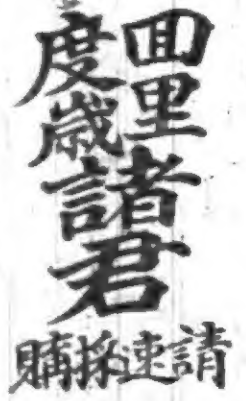 囬里
度歳
諸君
請速採購